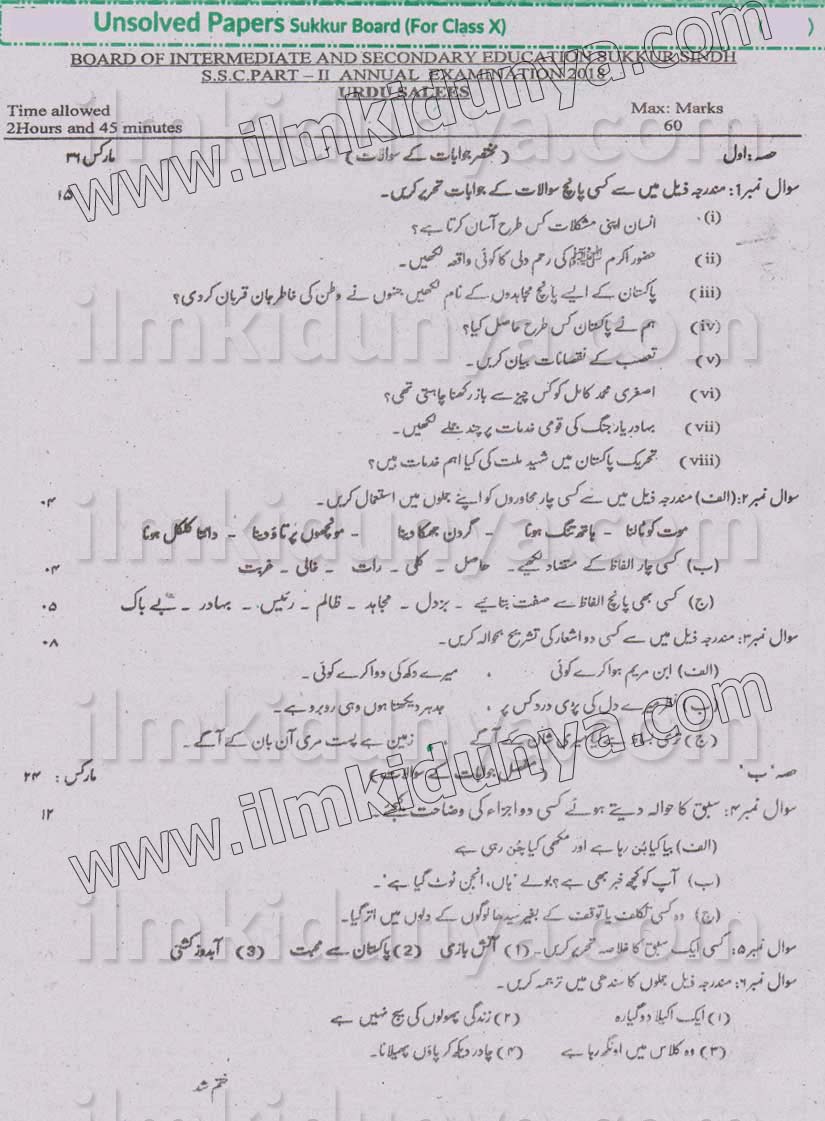 Unsolved Papers Sukkur Board (For Class X) ( )
BOARD OF INTERMEDIATE AND SECONDARY EDUCATION SUKKUR SINDH
S.S.C.PART – II ANNUAL EXAMINATION 2018
URDU SALEES
Time allowed Max: Marks
2Hours and 45 minutes 60
حصہ: اول (مختصر جوابات کے سوالات) مارکس ۳۶
سوال نمبر1: مندرجہ ذیل میں سے کسی پانچ سوالات کے جوابات تحریر کریں۔ ۱۵
(i) انسان اپنی مشکلات کس طرح آسان کرتا ہے؟
(ii) حضور اکرم ﷺ کی رحم دلی کا کوئی واقعہ لکھیں۔
(iii) پاکستان کے ایسے پانچ مجاہدوں کے نام لکھیں جنہوں نے وطن کی خاطر جان قربان کر دی؟
(iv) ہم نے پاکستان کس طرح حاصل کیا؟
(v) تعصب کے نقصانات بیان کریں۔
(vi) اصغری محمد کامل کو کس چیز سے باز رکھنا چاہتی تھی؟
(vii) بہادر یار جنگ کی قومی خدمات پر چند جملے لکھیں۔
(viii) تحریک پاکستان میں شہید ملت کی کیا اہم خدمات ہیں؟
سوال نمبر ۲: (الف) مندرجہ ذیل میں سے کسی چار محاوروں کو اپنے جملوں میں استعمال کریں۔ ۰۴
موت کو ٹالنا - ہاتھ تنگ ہونا - گردن جھکا دینا - مونچھوں پر تاؤ دینا - دانتا کلکل ہونا
(ب) کسی چار الفاظ کے متضاد لکھیے۔ حاصل - کلی - رات - خالی - غربت ۰۴
(ج) کسی بھی پانچ الفاظ سے صفت بتائیے - بزدل - مجاہد - ظالم - رئیس - بہادر - بے باک ۰۵
سوال نمبر ۳: مندرجہ ذیل میں سے کسی دو اشعار کی تشریح بحوالہ کریں۔ ۰۸
(الف) ابن مریم ہوا کرے کوئی ، میرے دکھ کی دوا کرے کوئی ۔
(ب) نظر میرے دل کی پڑی درد کس پر ، جدہر دیکھتا ہوں وہی روبرو ہے ۔
(ج) شان کے آگے زمین ہے پست مری آن بان کے آگے ۔
حصہ 'ب' (مفصل جوابات کے سوالات) مارکس : ۲۴
سوال نمبر ۴: سبق کا حوالہ دیتے ہوئے کسی دو اجزاء کی وضاحت کیجئے۔ ۱۲
(الف) بیا کیا بُن رہا ہے اور مکھی کیا چُن رہی ہے
(ب) آپ کو کچھ خبر بھی ہے؟ بولے "ہاں، انجن ٹوٹ گیا ہے"۔
(ج) وہ کسی تکلف یا توقف کے بغیر سیدھا لوگوں کے دلوں میں اتر گیا۔
سوال نمبر ۵: کسی ایک سبق کا خلاصہ تحریر کریں۔ (1) آتش بازی (2) پاکستان سے محبت (3) آبدوز کشتی
سوال نمبر ۶: مندرجہ ذیل جملوں کا سندھی میں ترجمہ کریں۔
(۱) ایک اکیلا دو گیارہ (۲) زندگی پھولوں کی سیج نہیں ہے
(۳) وہ کلاس میں اونگھ رہا ہے (۴) چادر دیکھ کر پاؤں پھیلانا۔
ختم شد
www.ilmkidunya.com
ilmkidunya.com